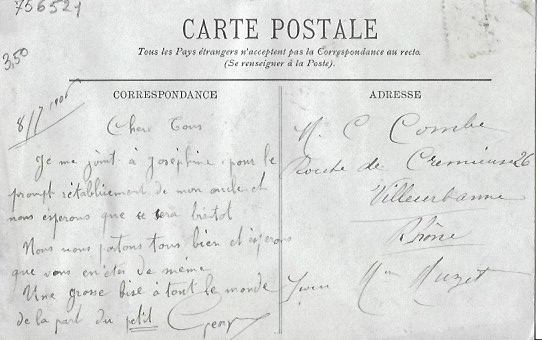 736521
3,50
CARTE POSTALE
Tous les Pays étrangers n'acceptent pas la Correspondance au recto.
(Se renseigner à la Poste).
CORRESPONDANCE
ADRESSE
8/7
Chers Tous
Je me joint à Joséphine pour le
prompt rétablissement de mon oncle et
nous esperons que ce sera bientot
Nous nous portons tous bien et esperons
que vous en etes de même
Une grosse bise à tout le monde
de la part du petit
M. C Combe
Route de Cremieux 26
Villeurbanne
Rhône
Muzet